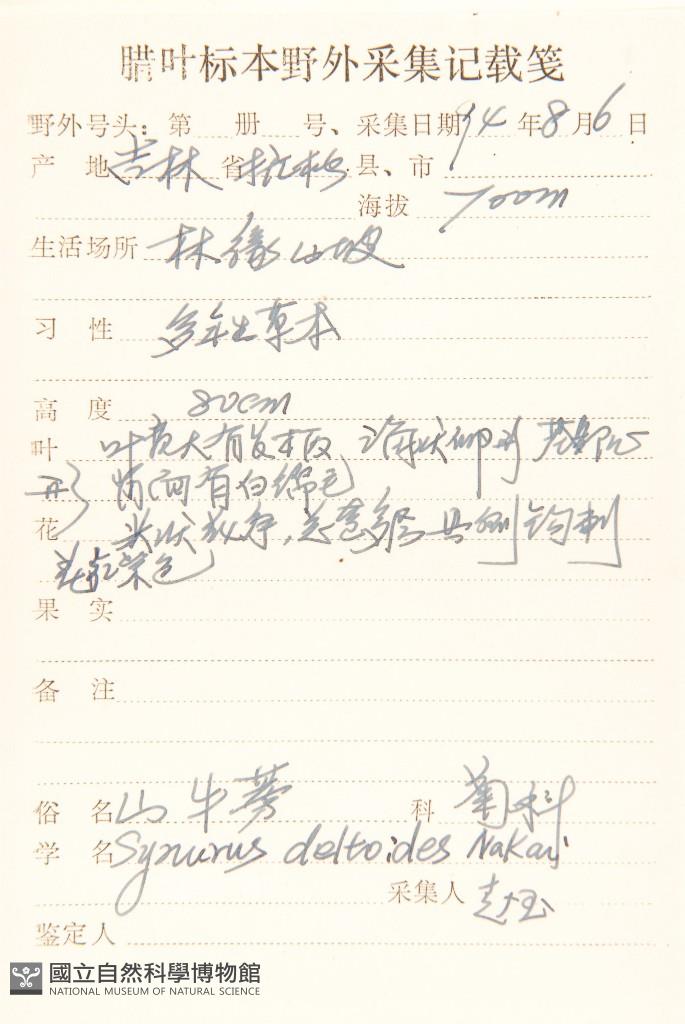 腊叶标本野外采集记载笺
野外号头：第 册 号、采集日期94年8月6日
产 地 吉林 省 县、市
海拔 700m
生活场所 林缘山坡
习 性 多年生草本
高 度 80cm
叶 叶 大有长柄 卵形 基部心
形 背面有白绵毛
花 头状花序，总苞 钟形
花 紫色
果 实
备 注
俗 名 山牛蒡 科 菊科
学 名 Synurus deltoides Nakai
采集人
鉴定人
國立自然科學博物館
NATIONAL MUSEUM OF NATURAL SCIENCE